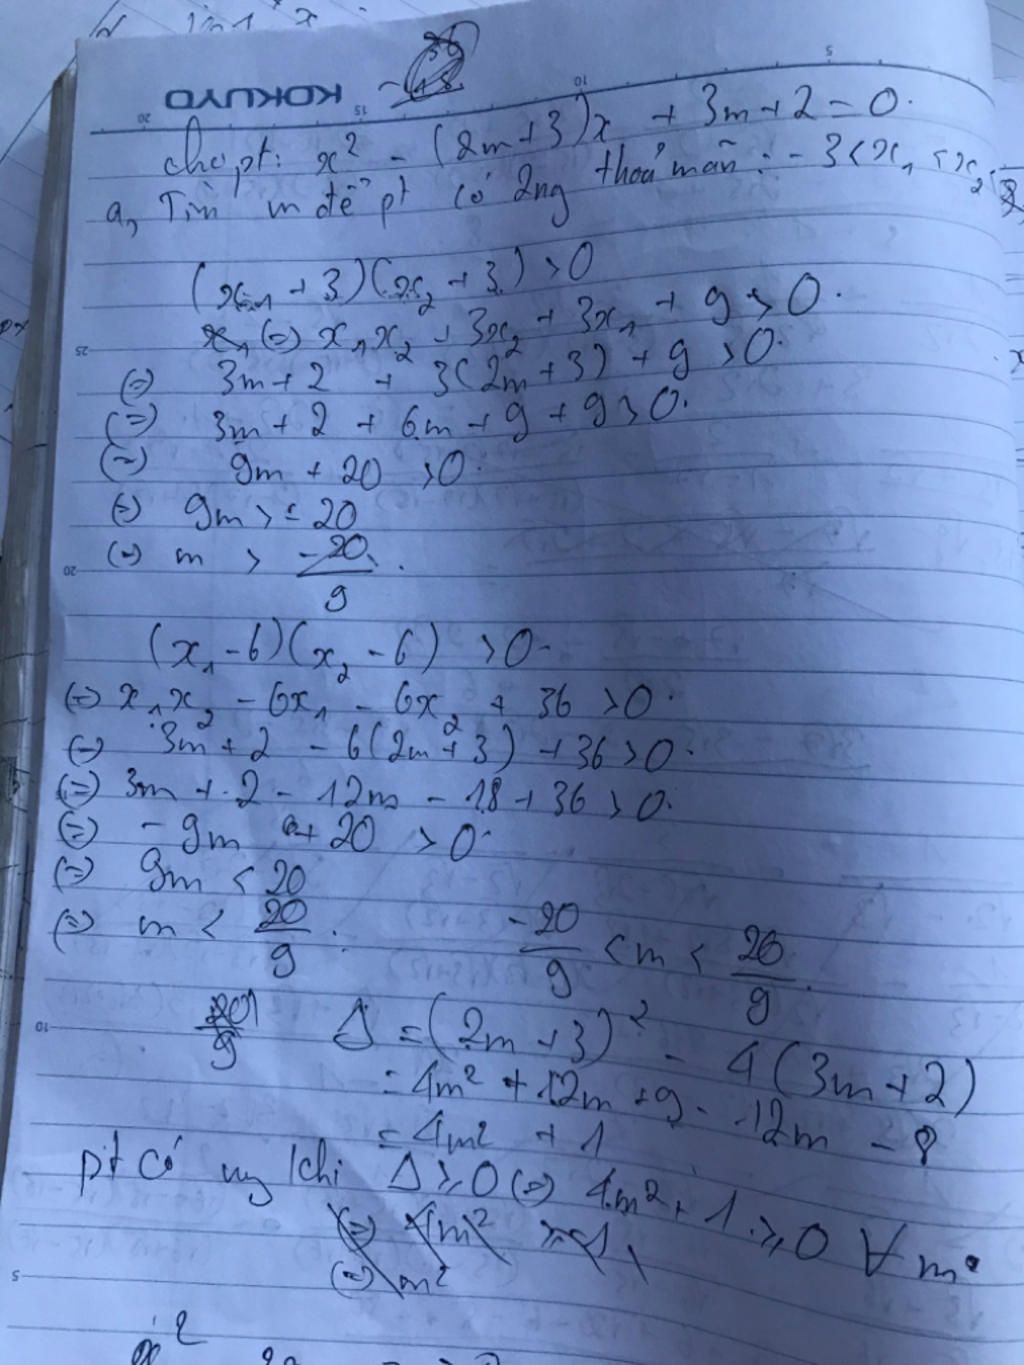 KOKUYO
cho pt: x² - (2m+3)x + 3m+2 = 0.
a, Tìm m để pt có 2ng thoả mãn: -3 < x₁ < x₂ <
(x₁ + 3)(x₂ + 3) > 0
(=) x₁x₂ + 3x₂ + 3x₁ + 9 > 0.
(=) 3m + 2 + 3(2m + 3) + 9 > 0.
(=) 3m + 2 + 6m + 9 + 9 > 0.
(=) 9m + 20 > 0.
(=) 9m > -20
(=) m > -20/9.
(x₁ - 6)(x₂ - 6) > 0.
(=) x₁x₂ - 6x₁ - 6x₂ + 36 > 0.
(=) 3m + 2 - 6(2m + 3) + 36 > 0.
(=) 3m + 2 - 12m - 18 + 36 > 0.
(=) -9m + 20 > 0.
(=) 9m < 20
(=) m < 20/9. -20/9 < m < 20/9.
Δ = (2m + 3)² - 4(3m + 2)
= 4m² + 12m + 9 - 12m - 8
= 4m² + 1
pt có ng khi Δ ⩾ 0 (=) 4m² + 1 ⩾ 0 ∀m.
(=) 4m² ⩾ -1
(=) m²